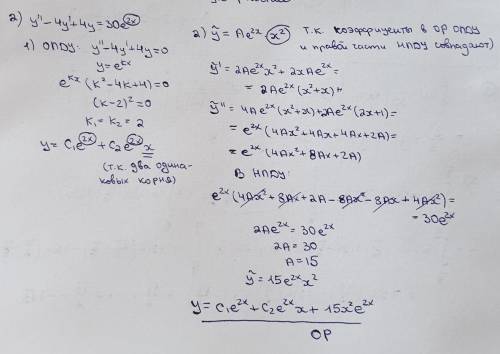 2) y''-4y'+4y=30e^2x
1) ОЛДУ: y''-4y'+4y=0
y=e^kx
e^kx(k²-4k+4)=0
(k-2)²=0
k₁=k₂=2
y=C₁e^2x+C₂e^2x x
(т.к. два одина-
ковых корня)
2) ỹ=Ae^2x x² т.к. коэффициенты в ОР ОЛДУ
и правой части НЛДУ совпадают)
ỹ'=2Ae^2x x²+2xAe^2x=
=2Ae^2x(x²+x)
ỹ''=4Ae^2x(x²+x)+2Ae^2x(2x+1)=
=e^2x·(4Ax²+4Ax+4Ax+2A)=
=e^2x·(4Ax²+8Ax+2A)
В НЛДУ:
e^2x(4Ax²+8Ax+2A-8Ax²-8Ax+4Ax²)=
=30e^2x
2Ae^2x=30e^2x
2A=30
A=15
ỹ=15e^2x x²
y=C₁e^2x+C₂e^2x x+15x²e^2x
ОР